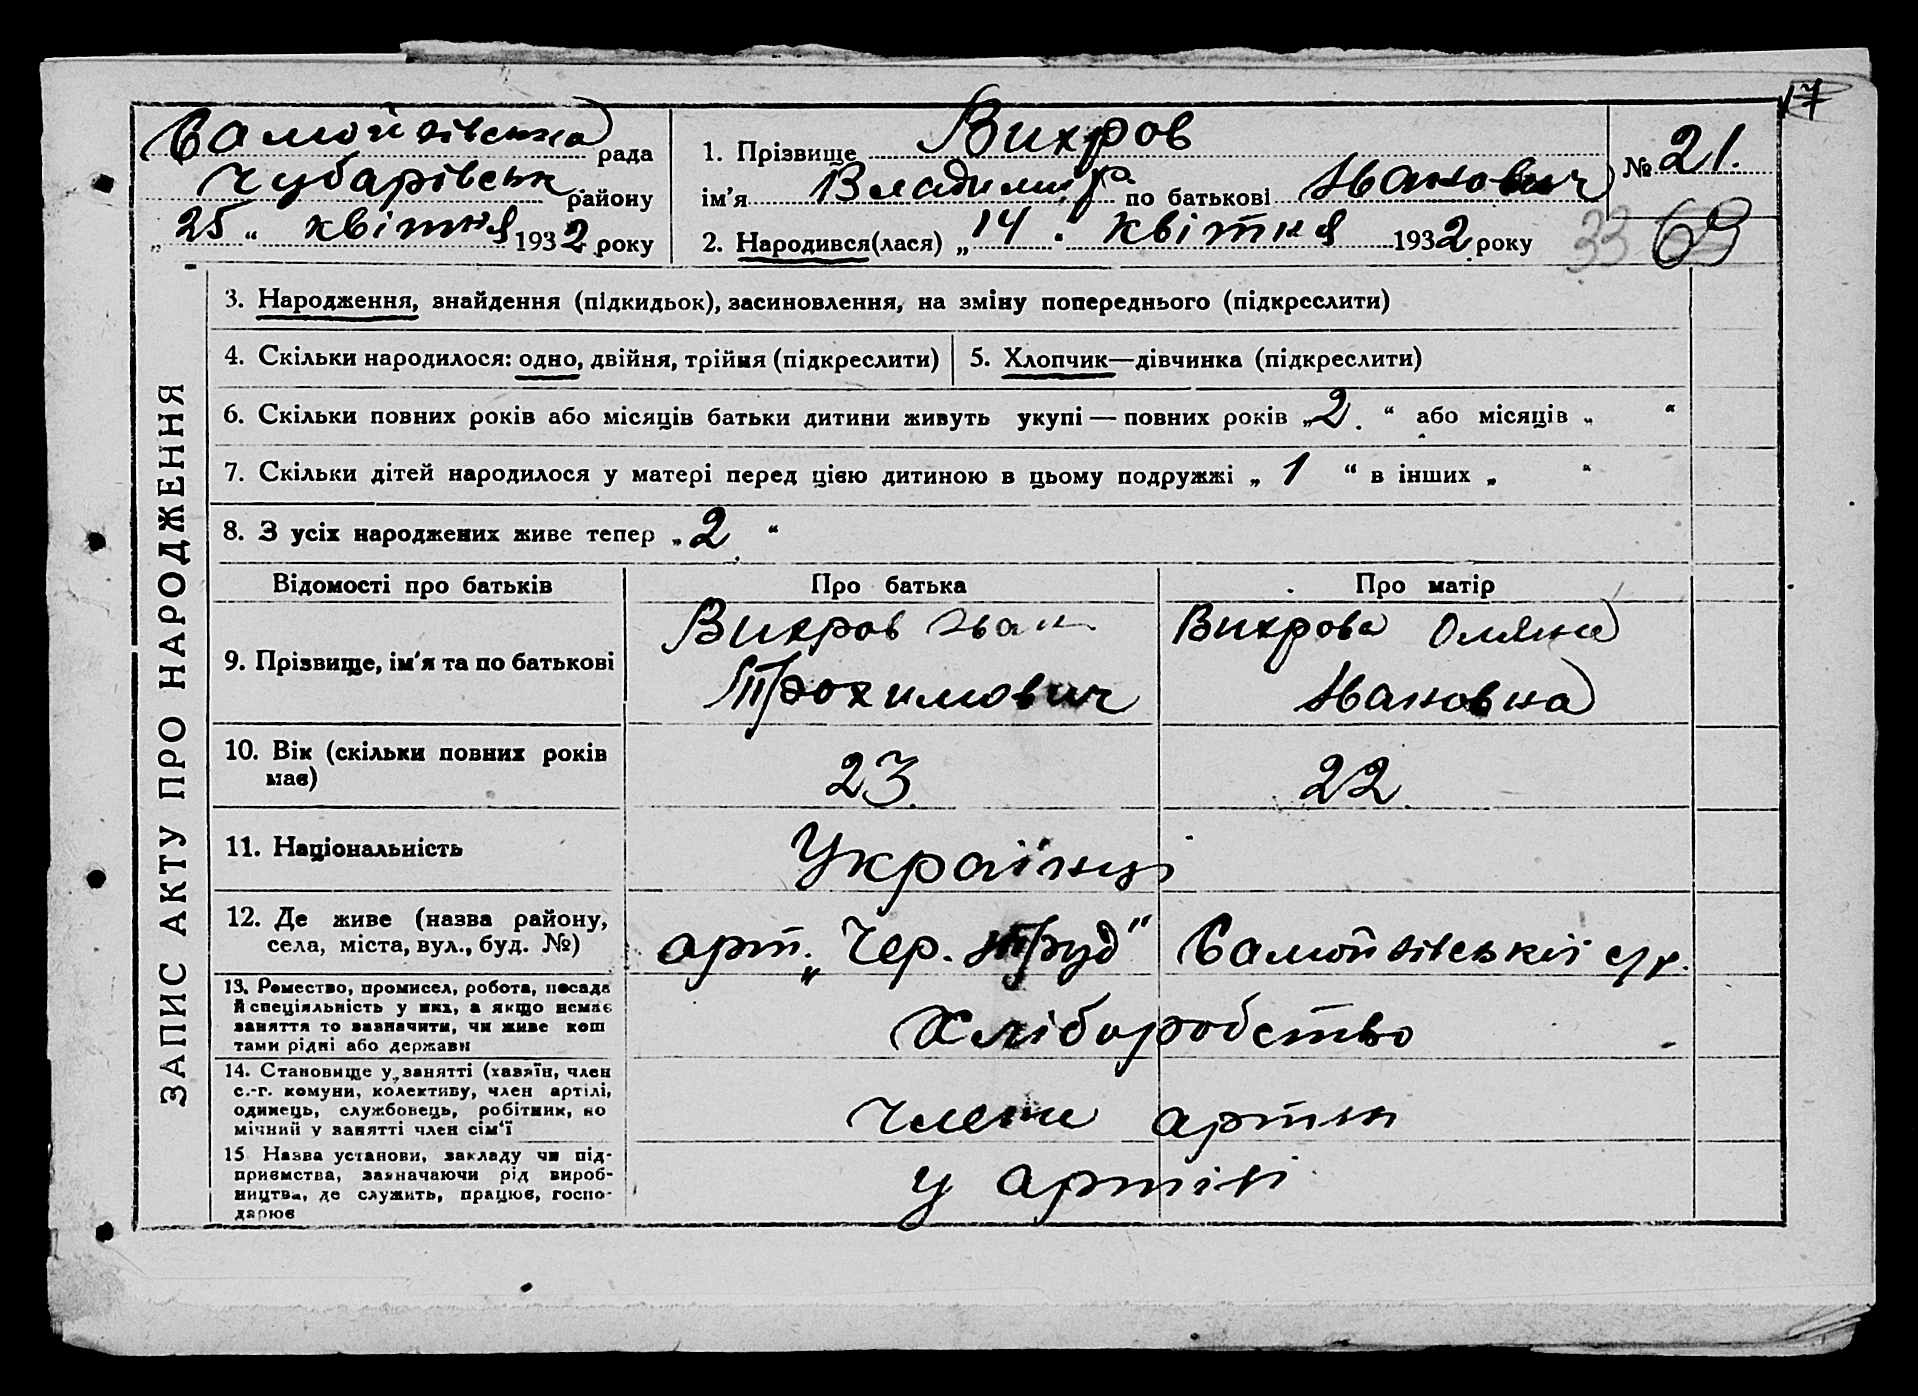 17
Самойлівська рада
Чубарівськ. району
„25“ квітня 1932 року
1. Прізвище Вихров
ім'я Владимир по батькові Іванович
2. Народився(лася) „14“ квітня 1932 року
№ 21.
33 69
ЗАПИС АКТУ ПРО НАРОДЖЕННЯ
3. Народження, знайдення (підкидьок), засиновлення, на зміну попереднього (підкреслити)
4. Скільки народилося: одно, двійня, трійня (підкреслити)
5. Хлопчик—дівчинка (підкреслити)
6. Скільки повних років або місяців батьки дитини живуть укупі — повних років „2“ або місяців „ “
7. Скільки дітей народилося у матері перед цією дитиною в цьому подружжі „1“ в інших „ “
8. З усіх народжених живе тепер „2“
Відомості про батьків Про батька Про матір
9. Прізвище, ім'я та по батькові
Вихров Іван
Трохимович
Вихрова Оляна
Івановна
10. Вік (скільки повних років
має)
23. 22.
11. Національність
Українці
12. Де живе (назва району,
села, міста, вул., буд. №)
арт. „Чер. труд“ Самойлівської с/р.
13. Ремество, промисел, робота, посада
й спеціяльність у них, а якщо немає
заняття то зазначити, чи живе кош
тами рідні або держави
Хліборобство
14. Становище у занятті (хазяїн, член
с.-г. комуни, колективу, член артілі,
одинець, службовець, робітник, по
мічний у занятті член сім'ї
члени артіл
15 Назва установи, закладу чи під-
приємства, зазначаючи рід вироб-
ництва, де служить, працює, госпо-
дарює
у артілі